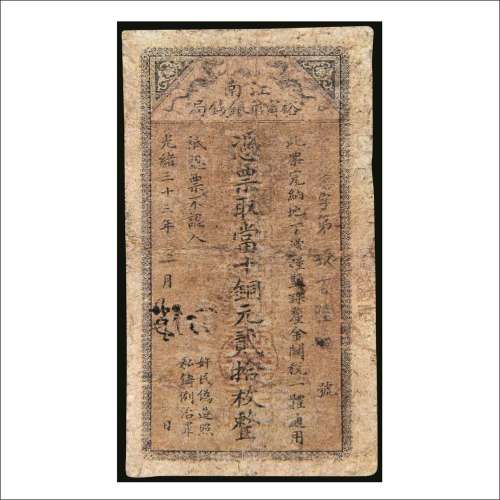 江南
裕甯官銀錢局
字第 號
此票完納地丁漕糧鹽課釐金關稅一體通用
憑票取當十銅元貳拾枚整
祇認票不認人
光緒三十三年 月 日
奸民偽造照
私鑄例治罪